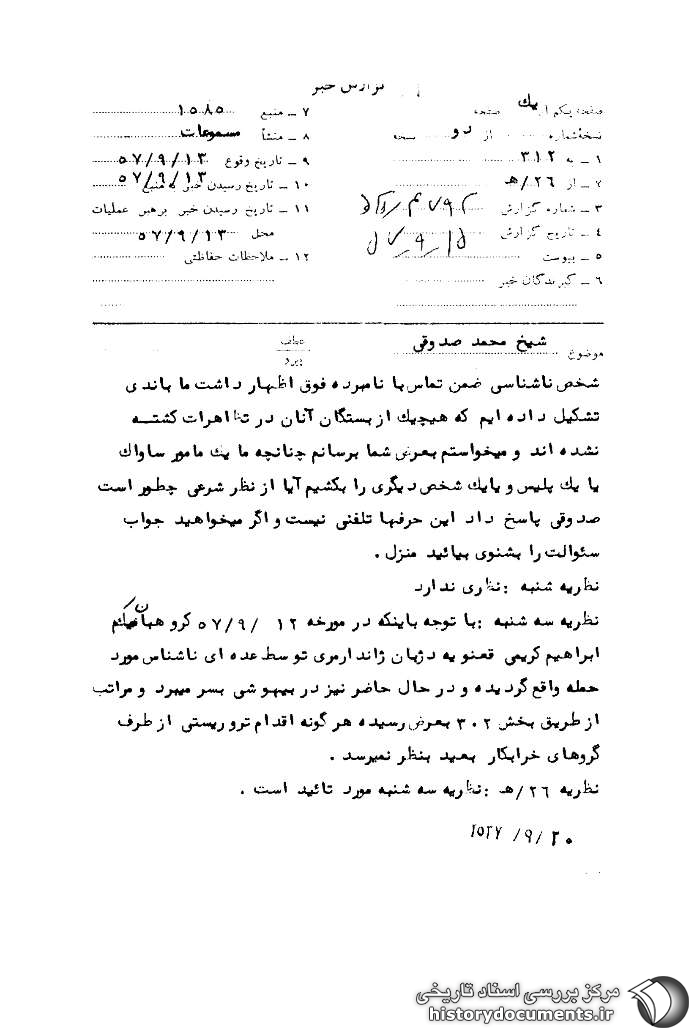 گزارش خبر
صفحه یکم از یک صفحه
نسخه شماره از دو نسخه
۱ ـ به ۳۱۲
۲ ـ از ۲۶/هـ
۳ ـ شماره گزارش
۴ ـ تاریخ گزارش ۵۷/۹/۱۵
۵ ـ پیوست
۶ ـ گیرندگان خبر
۷ ـ منبع ۱۵۸۵
۸ ـ منشأ مسموعات
۹ ـ تاریخ وقوع ۵۷/۹/۱۳
۱۰ ـ تاریخ رسیدن خبر به منبع ۵۷/۹/۱۳
۱۱ ـ تاریخ رسیدن خبر برهبر عملیات
محل ۵۷/۹/۱۳
۱۲ ـ ملاحظات حفاظتی
موضوع شیخ محمد صدوقی
عطف
پیرو
شخص ناشناسی ضمن تماس با نامبرده فوق اظهار داشت ما باندی
تشکیل داده ایم که هیچیک از بستگان آنان در تظاهرات کشته
نشده اند و میخواستم بعرض شما برسانم چنانچه ما یک مامور ساواک
یا یک پلیس و یا یک شخص دیگری را بکشیم آیا از نظر شرعی چطور است
صدوقی پاسخ داد این حرفها تلفنی نیست و اگر میخواهید جواب
سئوالت را بشنوی بیائید منزل .
نظریه شنبه : نظری ندارد
نظریه سه شنبه : با توجه باینکه در مورخه ۱۲ /۵۷/۹ گروهبان یکم
ابراهیم کریمی قعنویه دژبان ژاندارمری توسط عده ای ناشناس مورد
حمله واقع گردیده و در حال حاضر نیز در بیهوشی بسر میبرد و مراتب
از طریق بخش ۳۰۲ بعرض رسیده هرگونه اقدام تروریستی از طرف
گروهای خرابکار بعید بنظر نمیرسد .
نظریه ۲۶/هـ : نظریه سه شنبه مورد تائید است .
۲۵۳۷ /۹/ ۲۰
مرکز بررسی اسناد تاریخی
historydocuments.ir